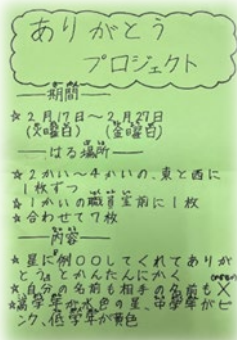 ありがとう
プロジェクト
期間
☆2月17日〜2月27日
(火曜日) (金曜日)
はる場所
☆2かい〜4かいの、東と西に
1枚ずつ
☆1かいの職員室前に1枚
☆合わせて7枚
内容
☆星に例〇〇してくれてありが
とう。とかんたんにかく
☆自分の名前も相手の名前も✕
☆高学年が水色の星、中学年がピ
ンク、低学年が黄色